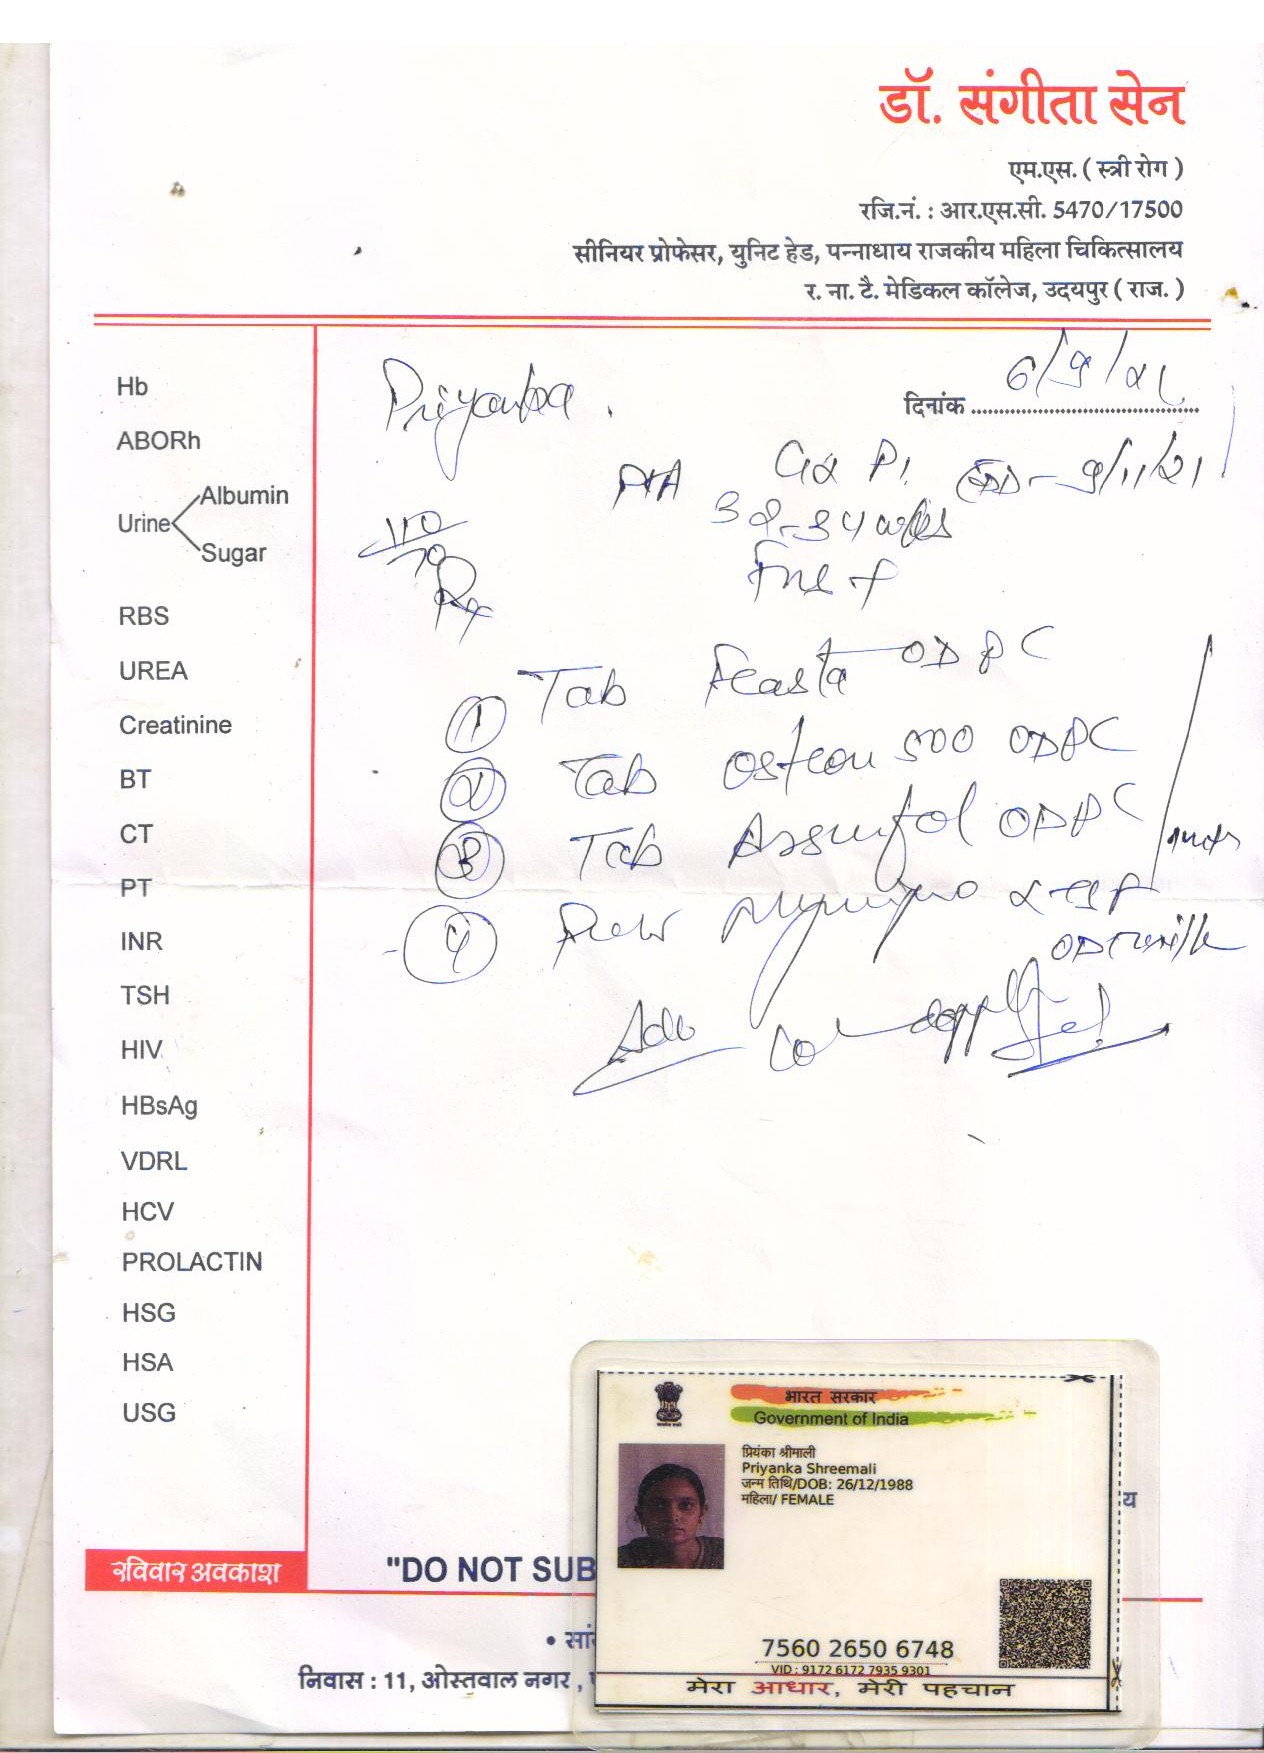 डॉ. संगीता सेन
एम.एस. ( स्त्री रोग )
रजि.नं. : आर.एस.सी. 5470/17500
सीनियर प्रोफेसर, युनिट हेड, पन्नाधाय राजकीय महिला चिकित्सालय
र. ना. टै. मेडिकल कॉलेज, उदयपुर ( राज. )
Hb
ABORh
Urine
Albumin
Sugar
RBS
UREA
Creatinine
BT
CT
PT
INR
TSH
HIV
HBsAg
VDRL
HCV
PROLACTIN
HSG
HSA
USG
Priyanka .
दिनांक 6/9/21
G2 P1 EDD - 9/11/21
32-34 wks
110/70
Rx
① Tab ODPC
② Tab Osteon 500 ODPC
③ Tab ODPC
④
Adv
भारत सरकार
Government of India
प्रियंका श्रीमाली
Priyanka Shreemali
जन्म तिथि/DOB: 26/12/1988
महिला/ FEMALE
7560 2650 6748
VID : 9172 6172 7935 9301
मेरा आधार, मेरी पहचान
य
रविवार अवकाश
"DO NOT SUB
• सां
निवास : 11, ओस्तवाल नगर ,